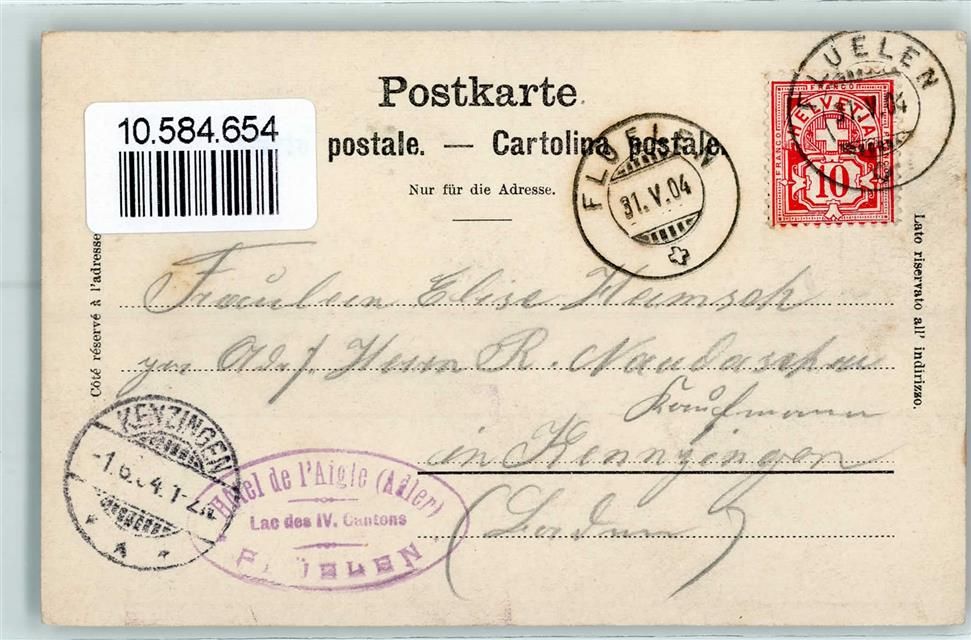 Postkarte
10.584.654
postale. — Cartolina postale.
Nur für die Adresse.
FLUELEN
31.V.04
FLUELEN
31.V.04
FRANCO
HELVETIA
FRANCO
FRANCO
10
Côté réservé à l'adresse
Lato riservato all' indirizzo.
Fräulein Elise
Adr. Herrn R.
Kaufmann
in Kennzingen
(Baden)
KENZINGEN
-1.6.04.1-2N.
* A *
Hôtel de l'Aigle (Adler)
Lac des IV. Cantons
FLÜELEN